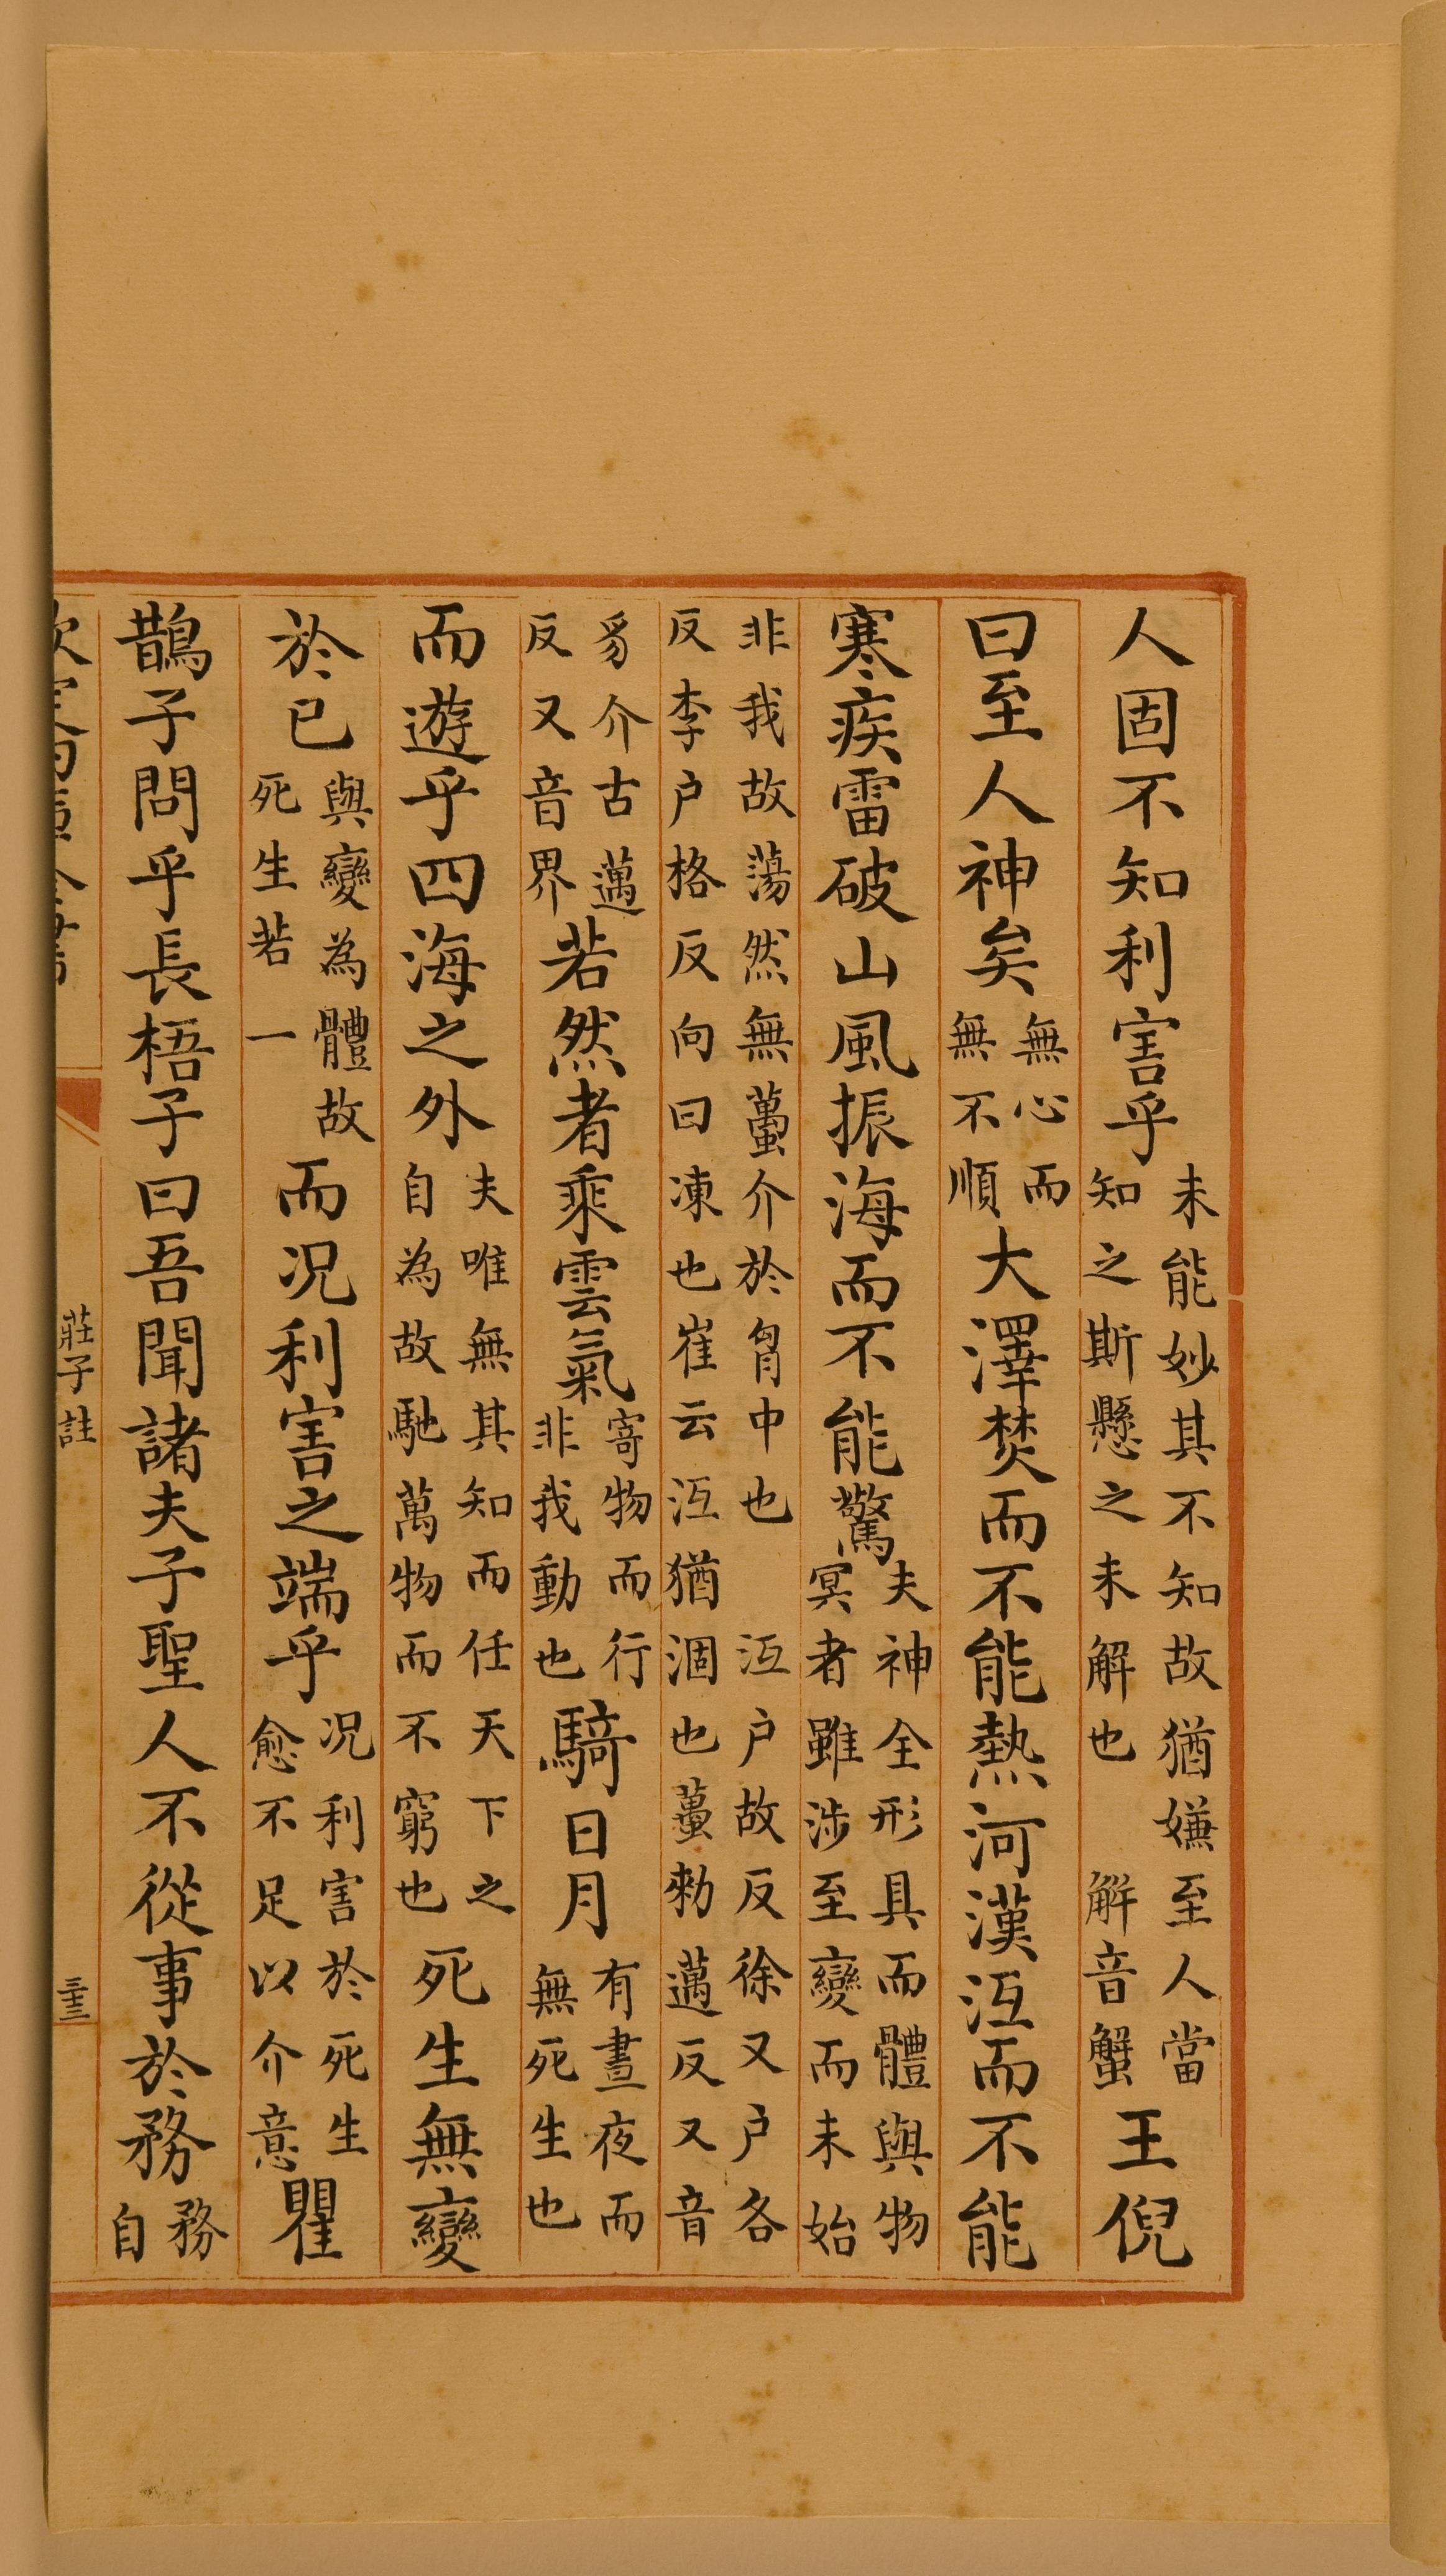 人固不知利害乎未能妙其不知故猶嫌至人當知之斯懸之未解也 解音蟹王倪
曰至人神矣無心而無不順大澤焚而不能熱河漢沍而不能
寒疾雷破山風振海而不能驚夫神全形具而體與物冥者雖涉至變而未始
非我故蕩然無蠆介於胷中也 沍户故反徐又户各反李户格反向曰凍也崔云沍猶涸也蠆勑邁反又音
豸介古邁反又音界若然者乘雲氣寄物而行非我動也騎日月有晝夜而無死生也
而遊乎四海之外夫唯無其知而任天下之自為故馳萬物而不窮也死生無變
於已與變為體故死生若一而况利害之端乎况利害於死生愈不足以介意瞿
鵲子問乎長梧子曰吾聞諸夫子聖人不從事於務務自
莊子註
三十三